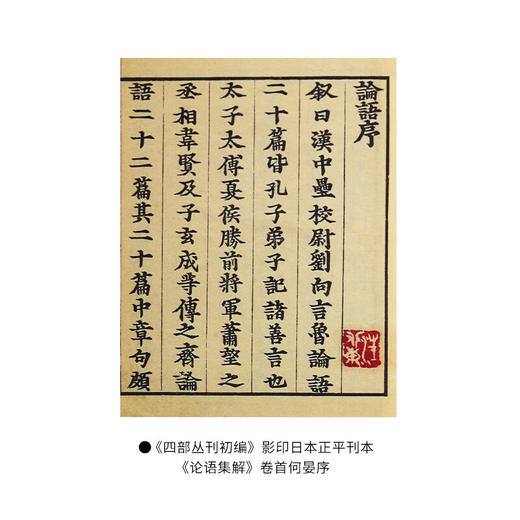 論語序
叙曰漢中壘校尉劉向言魯論語
二十篇皆孔子弟子記諸善言也
太子太傅夏侯勝前將軍蕭望之
丞相韋賢及子玄成等傳之齊論
語二十二篇其二十篇中章句頗
●《四部丛刊初编》影印日本正平刊本
《论语集解》卷首何晏序